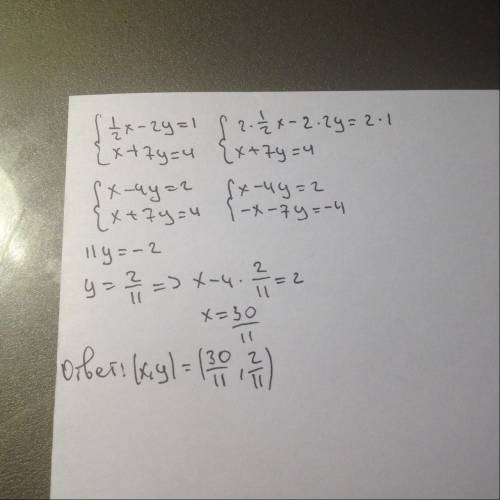 { 1/2 x-2y=1 { 2·1/2 x-2·2y=2·1
{ x+7y=4 { x+7y=4
{ x-4y=2 { x-4y=2
{ x+7y=4 { -x-7y=-4
11y=-2
y=2/11 => x-4·2/11=2
x=30/11
Ответ: (x,y)=(30/11, 2/11)